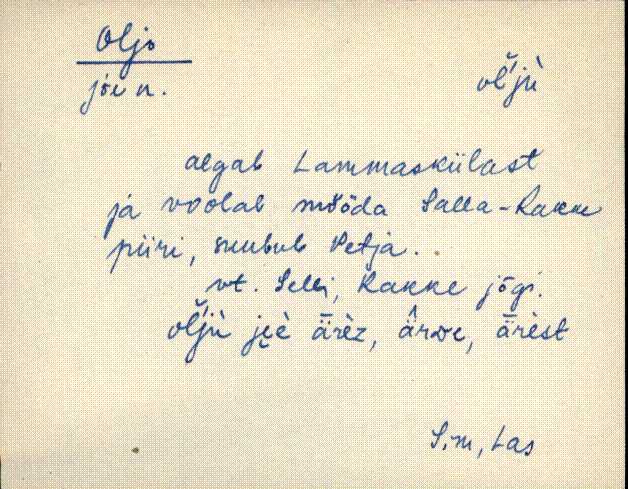 Oljo
jõe n.
ol̆'jù
algab Lammaskülast
ja voolab mööda Salla-Rakke
piiri, suubub Petja.
vt. Selli, Rakke jõgi.
ol̆'jù jè̮è ärèz, ärwe, ärèst
Sim, Las